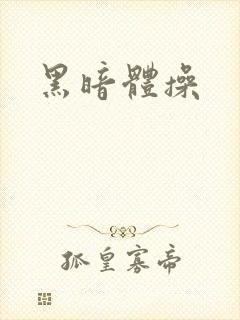 黑暗體操
孤皇寡帝